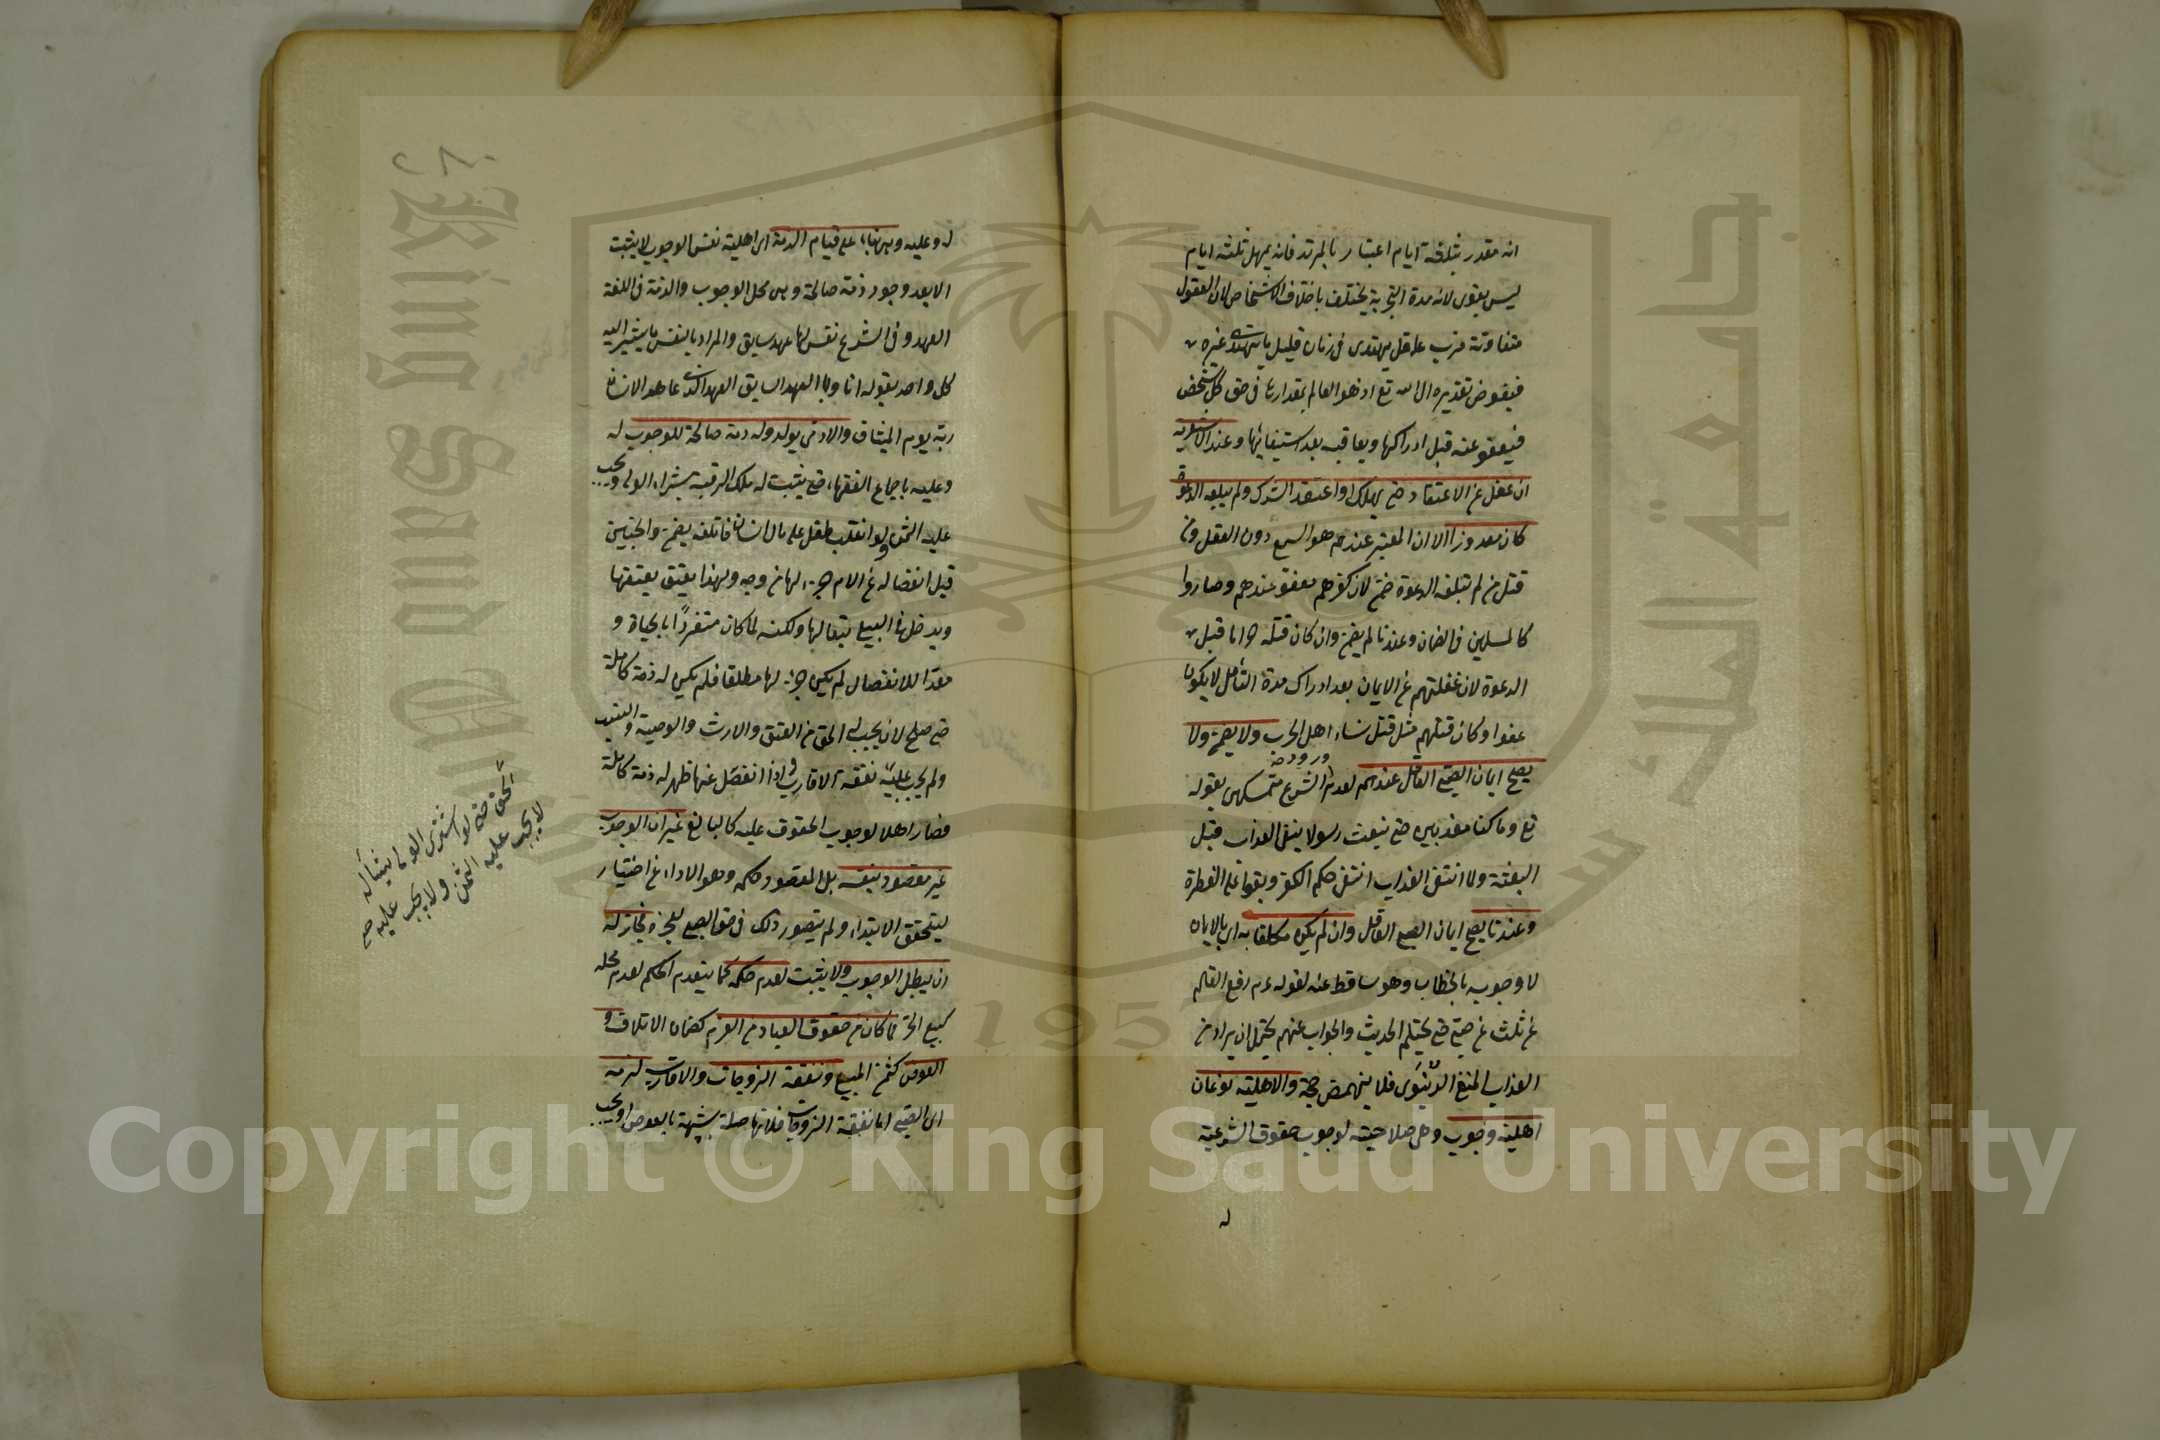 انه مقدر بثلثة ايام اعتبارا بالمرتد فانه يمهل ثلثة ايام
ليس بقوى لانه مدة التجربة يختلف باختلاف الاشخاص لان العقول
متفاوتة فرب عاقل يهتدى فى زمان قليل ما يهتدى غيره
فيفوض تقديره الى الله تع اذ هو العالم بمقدارها فى حق كل شخص
فيعفو عنه قبل ادراكها ويعاقبه بعد استيفائها وعند الاشعرية
ان غفل عن الاعتقاد حتى يهلك او اعتقد الشرك ولم يبلغه الدعوة
كان معذورا لان المعتبر عندهم هو السمع دون العقل ومن
قتل من لم تبلغه الدعوة ضمن لان كفرهم معفو عندهم وصاروا
كالمسلمين فى الضمان وعندنا لم يضمن وان كان قتله حراما قبل
الدعوة لان غفلتهم عن الايمان بعد ادراك مدة التأمل لا يكون
عفوا وكان قتلهم مثل قتل نساء اهل الحرب ولا يضمن ولا
يصح ايمان الصبى العاقل عندهم لعدم ورود الشرع متمسكين بقوله
تع وما كنا معذبين حتى نبعث رسولا ينفى العذاب قبل
البعثة ولما انتفى العذاب انتفى حكم الكفر وبقوا على الفطرة
وعندنا يصح ايمان الصبى العاقل وان لم يكن مكلفا به اى بالايمان
لا وجوبه بالخطاب وهو ساقط عنه لقوله عم رفع القلم
عن ثلث عن صبى حتى يحتلم الحديث والجواب عنهم يحتمل ان يراد من
العذاب المنفى الدنيوى فلا ينهض حجة والاهلية نوعان
اهلية وجوب وهى صلاحيته لوجوب حقوق الشرعية
له
٢٨٠
له وعليه وهى بناء على قيام الذمة اى اهلية نفس الوجوب لا يثبت
الا بعد وجود ذمة صالحة وهى محل الوجوب والذمة فى اللغة
العهد وفى الشرع نفس لها عهد سابق والمراد بالنفس ما يشير اليه
كل واحد بقوله انا وبالعهد السابق العهد الذى عاهد الانسان
ربه يوم الميثاق والادمى يولد وله ذمة صالحة للوجوب له
وعليه باجماع الفقهاء حتى يثبت له ملك الرقبة بشراء الولى ويجب
عليه الثمن ولو انقلب طفل على مال انسان فاتلفه يضمن والجنين
قبل انفصاله عن الام جزء لها من وجه ولهذا يعتق بعتقها
ويدخل فى البيع تبعا لها ولكنه لما كان متفردا بالحياة و
معدا للانفصال لم يكن جزء لها مطلقا فلم يكن له ذمة كاملة
حتى صلح لان يجب له الحق من العتق والارث والوصية والنسب
ولم يجب عليه نفقة الاقارب واذا انفصل عنها ظهر له ذمة كاملة
فصار اهلا لوجوب الحقوق عليه كالبالغ غير ان الوجوب
غير مقصود بنفسه بل المقصود حكمه وهو الاداء عن اختيار
ليتحقق الابتلاء ولم يتصور ذلك فى حق الصبى لعجزه فجاز له
ان يبطل الوجوب ولا يثبت لعدم حكمه كما ينعدم الحكم لعدم محله
كبيع الحر فما كان من حقوق العباد من الغرم كضمان الاتلاف و
العوض كثمن المبيع ونفقة الزوجات والاقارب لزمه
اى الصبى اما نفقة الزوجات فلانها صلة شبهة بالعوض ويجب
الحق حتى لو اشترى الولى شيئا له
لا يجب عليه الثمن ولا يجب عليه صح
Copyright © King Saud University
King Saud University
جامعة الملك سعود
1957